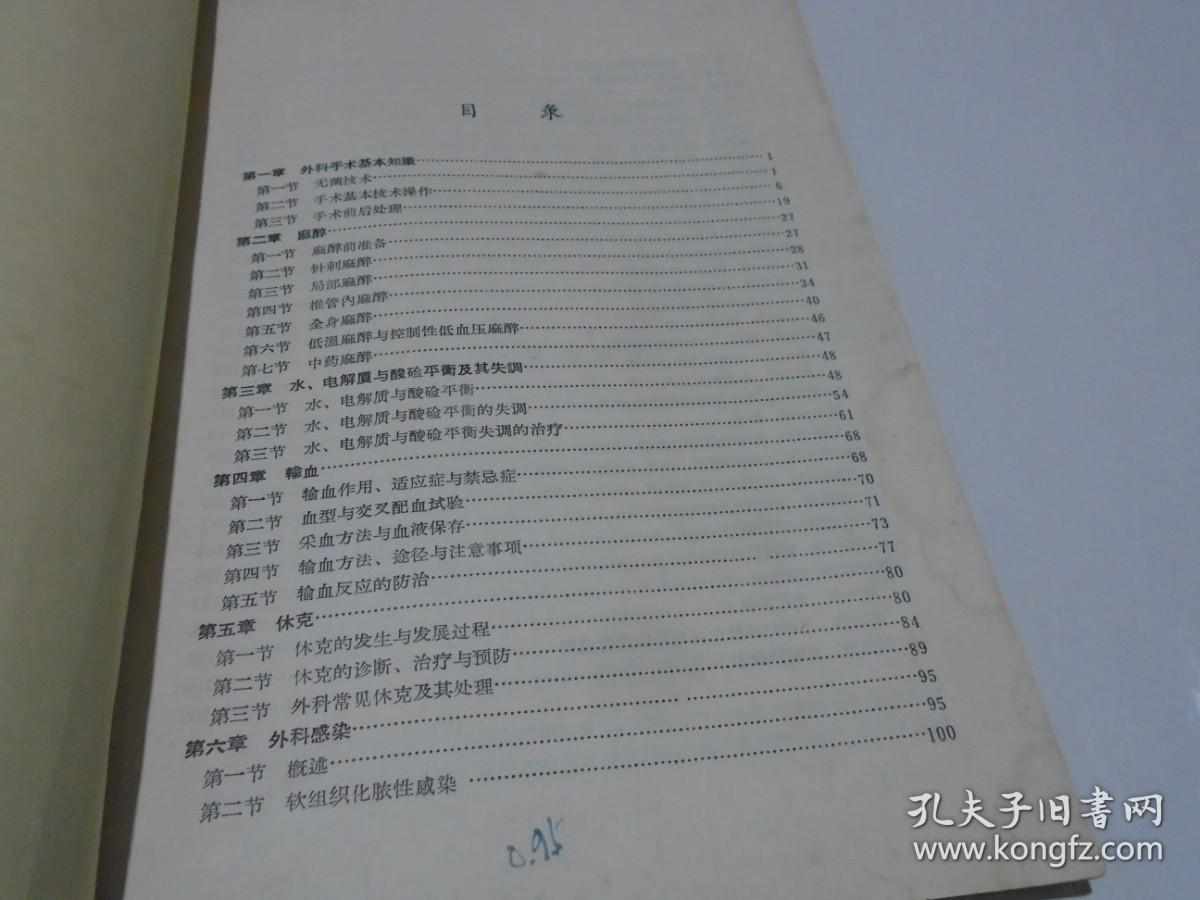 目 录
第一章 外科手术基本知識……1
第一节 无菌技术……1
第二节 手术基本技术操作……6
第三节 手术前后处理……19
第二章 麻醉……27
第一节 麻醉前准备……27
第二节 针刺麻醉……28
第三节 局部麻醉……31
第四节 椎管內麻醉……34
第五节 全身麻醉……40
第六节 低温麻醉与控制性低血压麻醉……46
第七节 中药麻醉……47
第三章 水、电解质与酸硷平衡及其失调……48
第一节 水、电解质与酸硷平衡……48
第二节 水、电解质与酸硷平衡的失调……54
第三节 水、电解质与酸硷平衡失调的治疗……61
第四章 輸血……68
第一节 输血作用、适应症与禁忌症……68
第二节 血型与交叉配血试验……70
第三节 采血方法与血液保存……71
第四节 输血方法、途径与注意事项……73
第五节 输血反应的防治……77
第五章 休克……80
第一节 休克的发生与发展过程……80
第二节 休克的诊断、治疗与预防……84
第三节 外科常见休克及其处理……89
第六章 外科感染……95
第一节 概述……95
第二节 软组织化脓性感染……100
0.95
孔夫子旧书网
www.kongfz.com